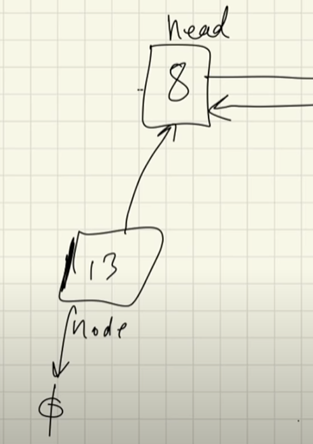 head
8
13
node